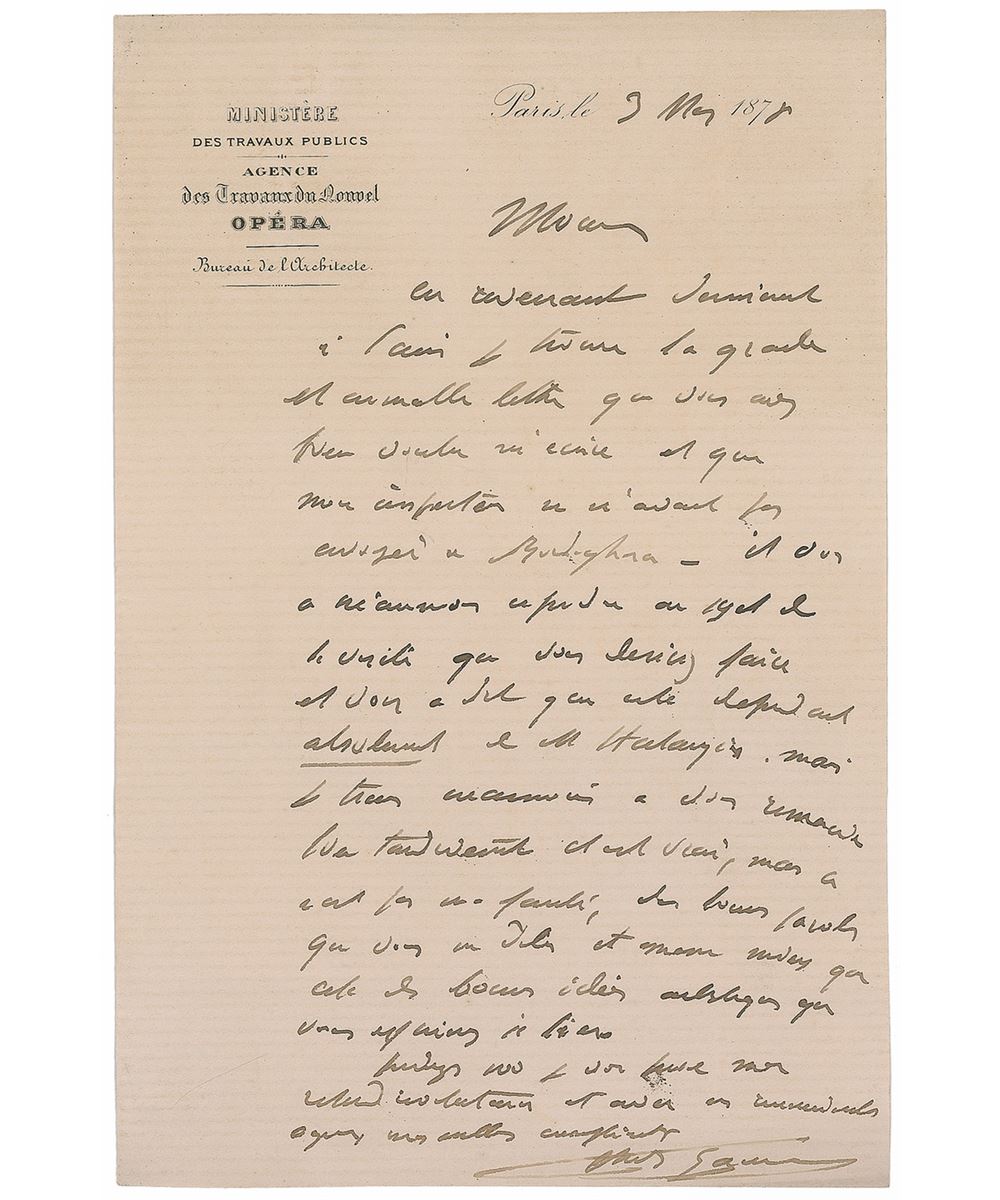 MINISTÈRE
DES TRAVAUX PUBLICS
AGENCE
des Travaux du Nouvel
OPÉRA
Bureau de l'Architecte.
Paris, le 3 Mai 1878
Monsieur
en revenant dernièrement
à Paris je trouve la grande
et aimable lettre que vous avez
bien voulu m'écrire et que
mon inspecteur ne m'avait pas
envoyé à Bordighera – il vous
a néanmoins répondu au sujet de
la visite que vous désiriez faire
et vous a dit que cela dépendait
absolument de M Halanzier. mais
je tiens néanmoins à vous remercier
bien tardivement c'est vrai, mais ce
n'est pas ma faute, des bonnes paroles
que vous me dites et même mieux que
cela des bonnes idées artistiques que
vous exprimez si bien
je vous
retard involontaire et avec mes remerciements
agréez mes meilleurs compliments
Ch Garnier